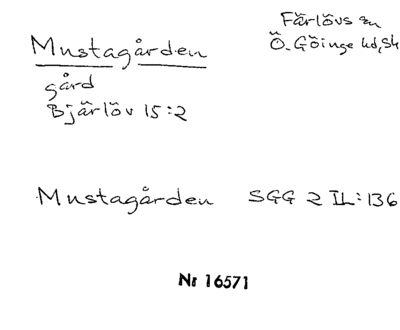 Färlövs sn
Mustagården
Ö. Göinge hd, Sk
gård
Bjärlöv 15:2
Mustagården SGG 2 II:136
Nr 16571